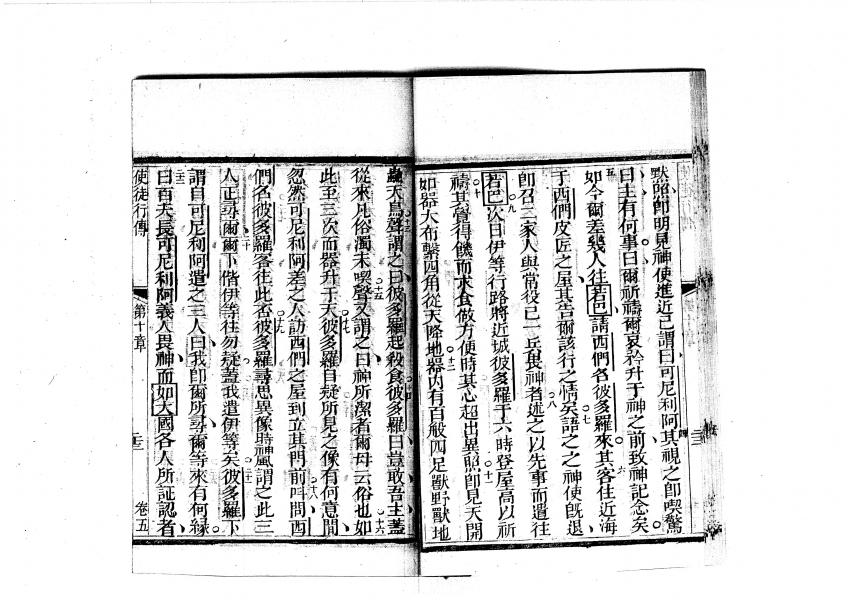 默照卽明見神使進近己謂曰可尼利阿其視之卽喫驚
四
曰主有何事曰爾祈禱爾哀矜升于神之前致神記念矣
五
如今爾差幾人往若巴請西們名彼多羅來其客住近海
六
于西們皮匠之屋其告爾該行之情矣語之之神使旣退
七
卽召二家人與常役已一兵畏神者述之以先事而遣往
八
若巴次日伊等行路將近城彼多羅于六時登屋高以祈
九
禱其覺得饑而求食做方便時其心超出異照卽見天開
十
十一
如器大布繫四角從天降地器內有百般四足獸野獸地
十二
蟲天鳥聲謂之曰彼多羅起殺食彼多羅曰豈敢吾主蓋
十三
十四
從來凡俗濁未喫聲又謂之曰神所潔者爾毋云俗也如
十五
十六
此至三次而器升于天彼多羅自疑所見之像有何意間
十七
忽然可尼利阿差之人訪西們之屋到立其門前呌問西
十八
們名彼多羅客住此否彼多羅尋思異像時神風謂之此三
十九
人正尋爾爾下偕伊等往勿疑蓋我遣伊等矣彼多羅下
二十
二一
謂自可尼利阿遣之三人曰我卽爾所尋爾等來有何緣
曰百夫長可尼利阿義人畏神而如大國各人所証認者
二二
使徒行傳
第十章
二三
卷五